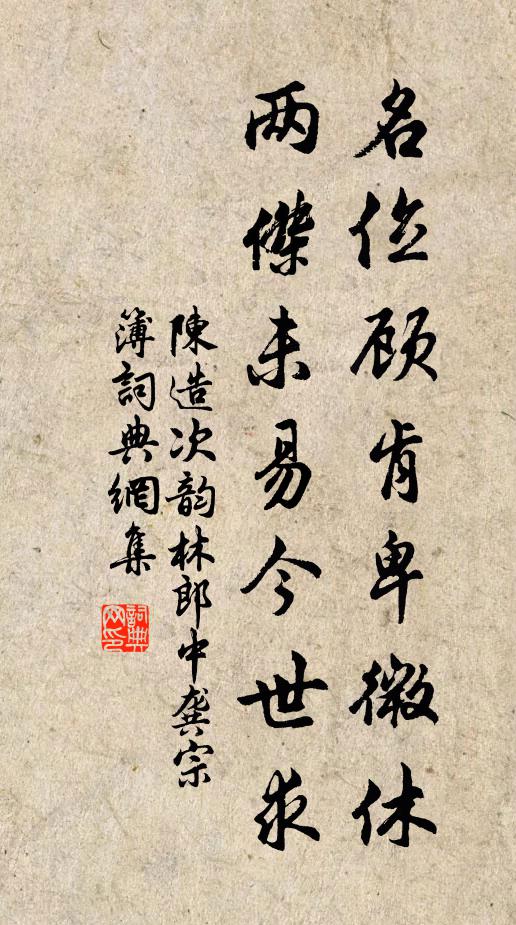 名位顾肯卑微休
两傑未易今世求
陳造次韵林郎中龚宗
簿詞典網集
詞典网印